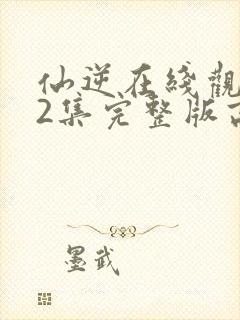 仙逆在綫觀
2集完整版
墨武